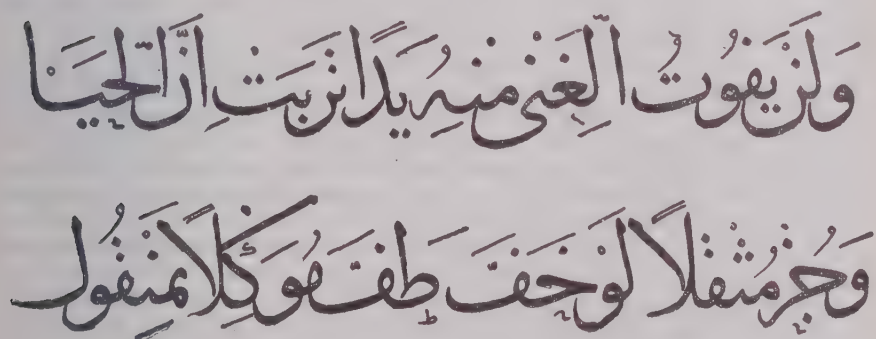 وَلَنْ يَفُوتُ الْغِنٰى مِنْهُ يَدًا تَرِبَتْ اِنَّ الْحَيَا
وَجُزْ مُثْقَلاً لَوْ خَفَّ طَفَّ مُوَكِّلاً بمنقول